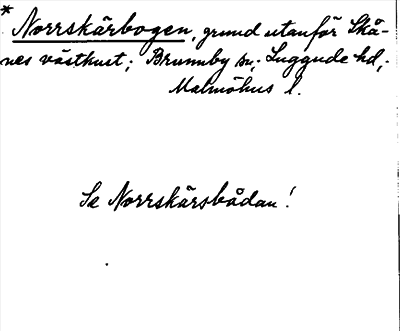 * Norrskärbogen, grund utanför Skå-
nes västkust; Brunnby sn; Luggude hd;
Malmöhus l.
Se Norrskärsbådan!